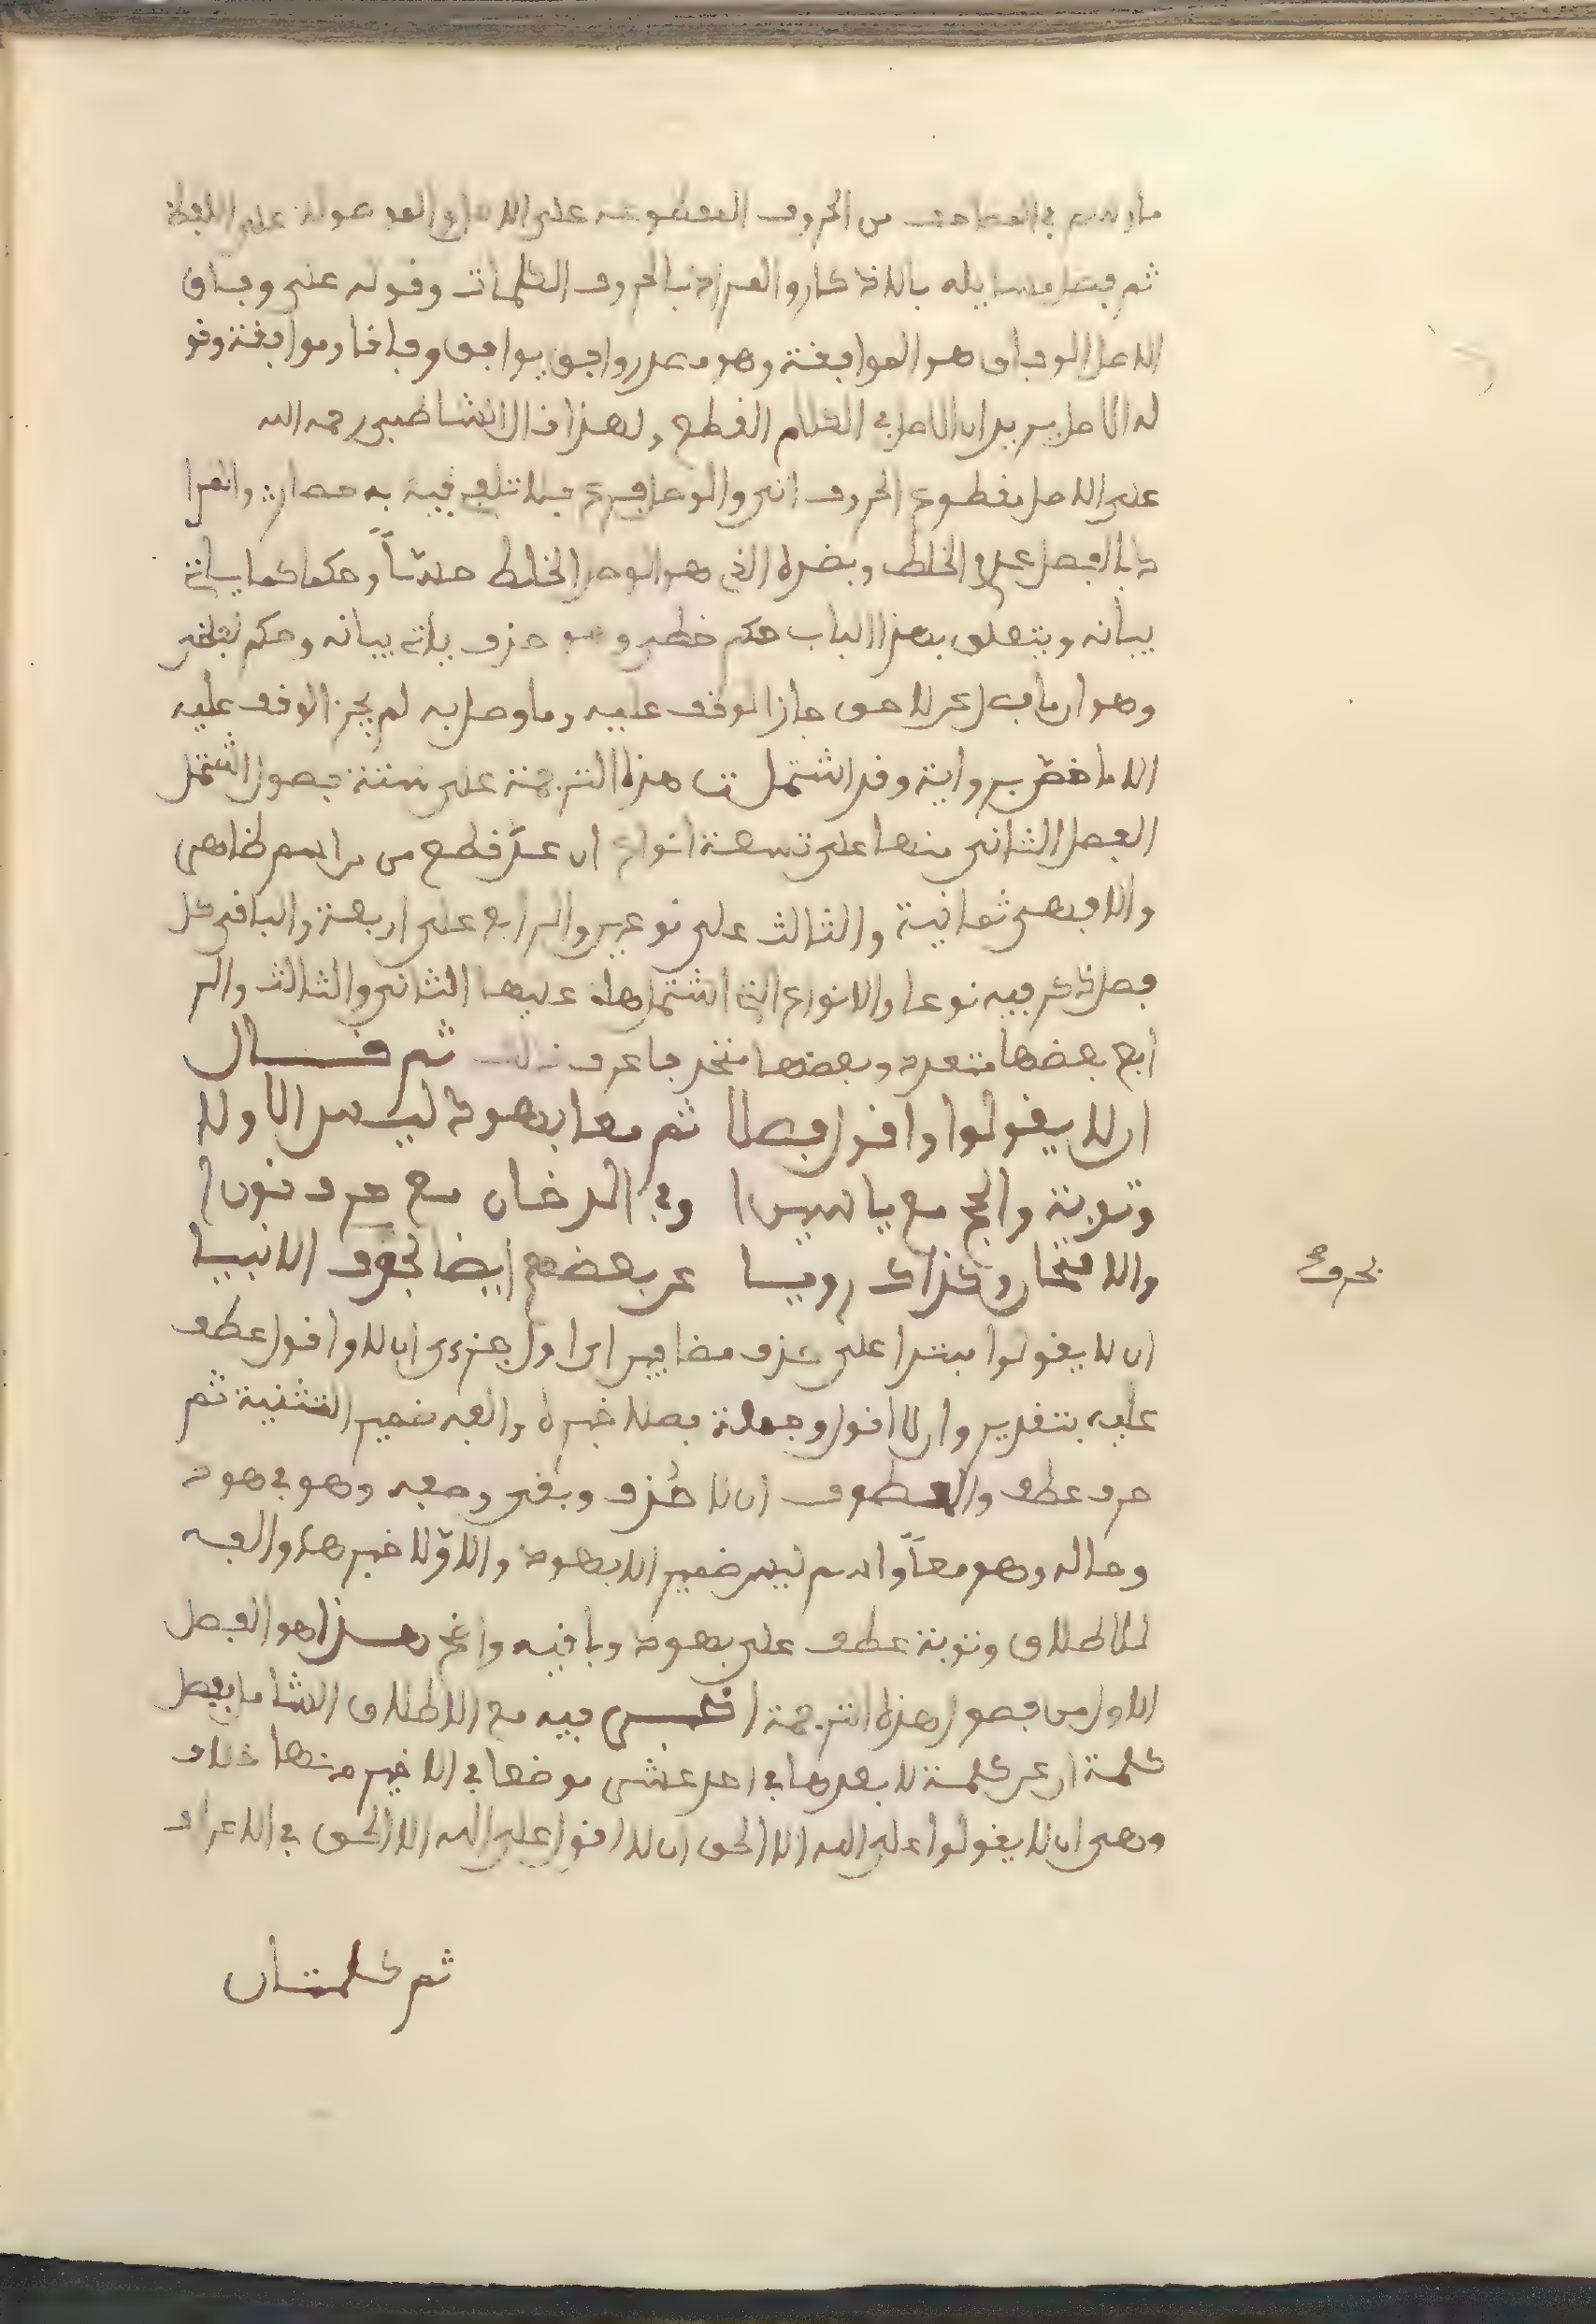 ما رسم في المصاحف من الحروف المقطوعة على الاصل والموصولة على اللفظ
ثم فصل مسايله بالاذكار والمراد بالحروف الكلمات وقوله على وفاق
الاصل الوفاق هو الموافقة وهو مصدر وافق يوافق وفاقا وموافقة وقو
له الاصل يريد ان الاصل في الكلام القطع ولهذا قال الشاطبي رحمه الله
على الاصل مقطوع الحروف اتى والوصل فرع فلا تلفى فيه به حصرا والمرا
د بالفصل عدم الخلط وبضده الذي هو الوصل الخلط حسّاً وحكما كما ياتي
بيانه ويتعلق بهذا الباب حكم خطي وهو حذف ياتي بيانه وحكم لفظي
وهو ان ما قطع لاحق جاز الوقف عليه وما وصل به لم يجز الوقف عليه
الا ما خصّ برواية وقد اشتملت هذه الترجمة على ستة فصول اشتمل
الفصل الثاني منها على تسعة انواع ان عدّ قطع من مّا اسم ظاهر
والا فهي ثمانية والثالث على نوعين والرابع على اربعة والباقي كل
فصل ذكر فيه نوعا والانواع التي اشتمل عليها الثاني والثالث والر
ابع بعضها متعدد وبعضها متحد فاعرف ذلك ثم قال
ان لا يقولوا واقول فصلا ثم معا بهود ليس الاولا
وتوبة والحج مع ياسين وفي الدخان مع حرف نون
والامتحان وكذاك رويا عن بعضهم ايضا بحرف الانبيا
بحرف
ان لا يقولوا مبتدا على حذف مضافين اي اول جزءي ان لا واقول عطف
عليه بتقدير وان لا اقول وجملة فصلا خبره والفه ضمير التثنية ثم
حرف عطف والمعطوف ان لا حُذف وبقي وصفه وهو في هود
وحاله وهو معاً واسم ليس ضمير الا بهود والاوّلا خبرها والفه
للاطلاق وتوبة عطف على بهود وباقيه واضح هذا هو الفصل
الاول من فصول هذه الترجمة اخبر فيه مع الاطلاق الشامل بفصل
كلمة ان عن كلمة لا بعدها في احد عشر موضعا في الاخير منها خلاف
وهي ان لا يقولوا على الله الا الحق ان لا اقول على الله الا الحق في الاعراف
ثم كلمتان